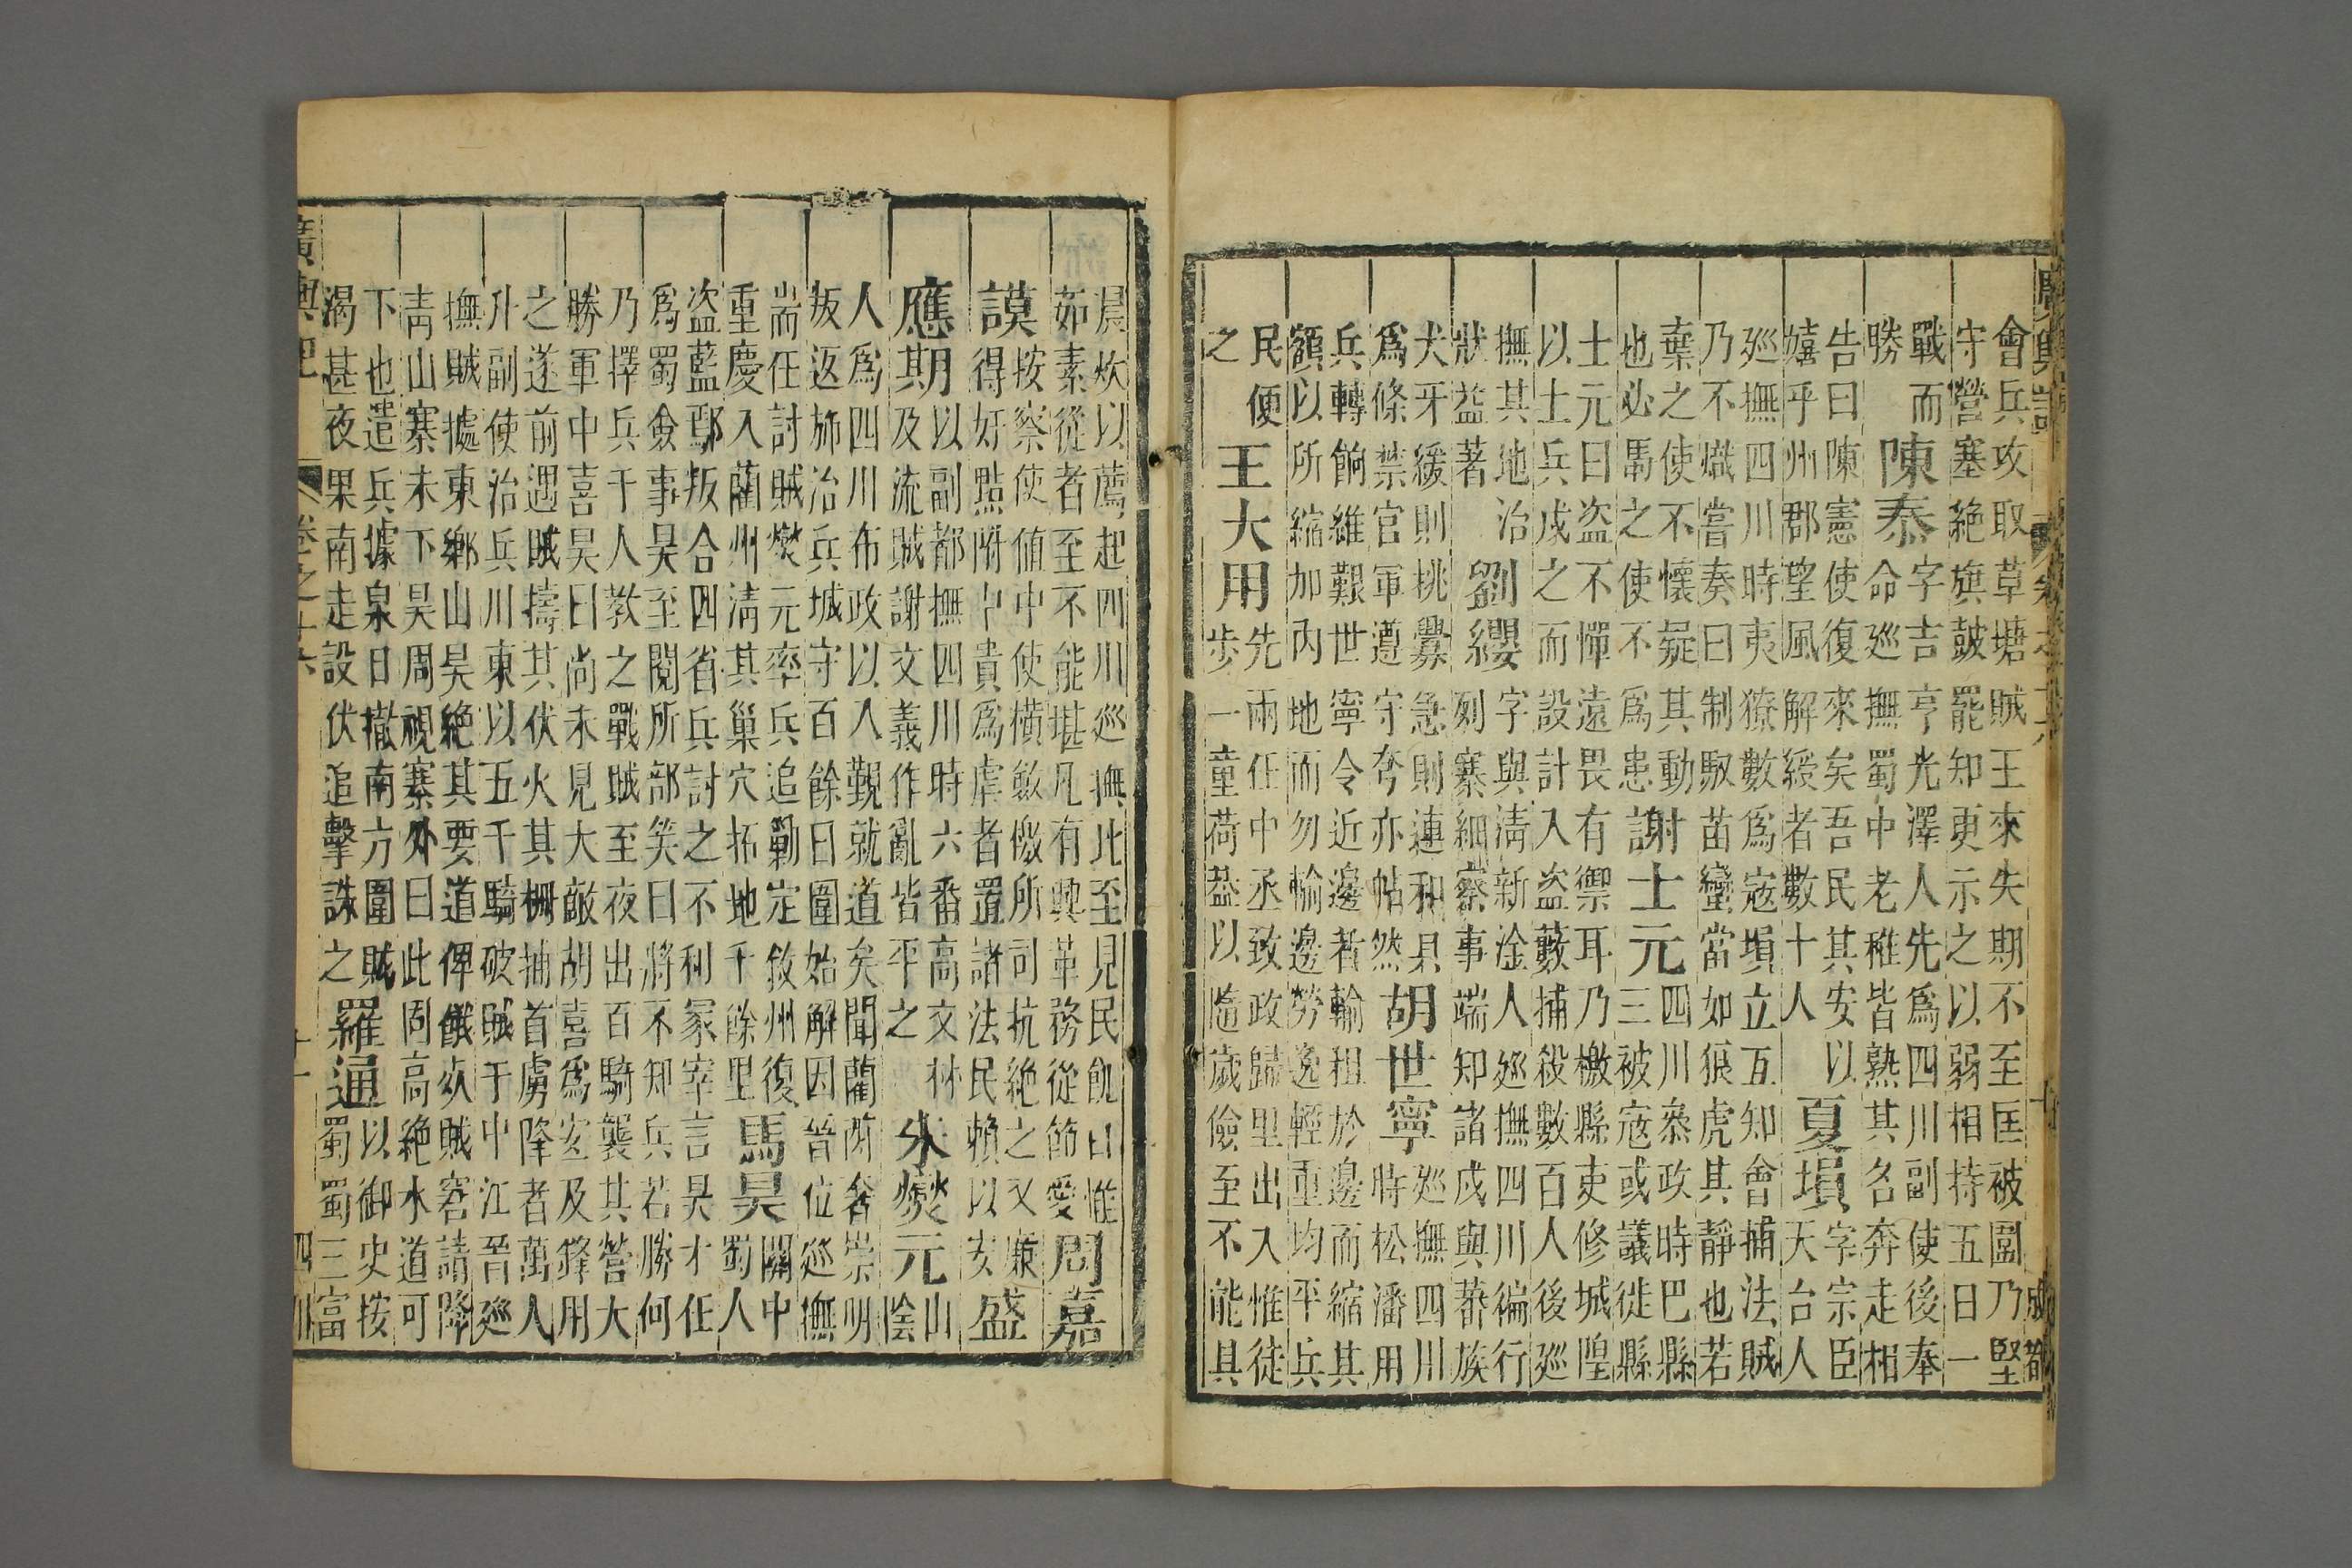 廣輿記 卷之十六 十 成都
會兵攻取草塘賊王來失期不至匡被圍乃堅
守營塞絕旗鼓罷知更示之以弱相持五日一
戰而
勝
陳泰
字吉亨光澤人先爲四川副使後奉
命巡撫蜀中老稚皆熟其名奔走相
告曰陳憲使復來矣吾民其安以
嬉乎州郡望風解綬者數十人
夏塤
字宗臣
天台人
廵撫四川時夷獠數爲寇塤立互知會捕法賊
乃不熾嘗奏曰制馭苗蠻當如狼虎其靜也若
葉之使不懷疑其動
也必禡之使不爲患
謝士元
四川叅政時巴縣
三被寇或議徙縣
士元曰盜不憚遠畏有禦耳乃檄縣吏修城隍
以土兵戍之而設計入盜藪捕殺數百人後廵
撫其地治
狀益著
劉纓
字與淸新淦人廵撫四川徧行
列寨細察事端知諸戍與蕃族
犬牙緩則挑釁急則連和具
爲條禁官軍遵守夸亦帖然
胡世寧
廵撫四川
時松潘用
兵轉餉維艱世寧令近邊者輸租於邊而縮其
額以所縮加內地而勿輸邊勞逸輕重均平兵
民便
之
王大用
先兩任中丞致政歸里出入惟徒
步一童荷葢以隨歲儉至不能具
晨炊以薦起四川巡撫此至見民飢日惟
茹素從者至不能堪凡有興革務從節愛
周嘉
謨
按察使値中使橫斂檄所司抗絕之又廉
得奸㸃附中貴爲虐者置諸法民賴以安
盛
應期
以副都撫四川時六番高文林
及流賊謝文義作亂皆平之
朱燮元
山
陰
人爲四川布政以入覲就道矣聞藺酋奢崇明
叛返斾治兵城守百餘日圍始解因晉位巡撫
耑任討賊燮元率兵追勦定敘州復
重慶入藺州淸其巢穴拓地千餘里
馬昊
關中
人蜀
盜藍鄢叛合四省兵討之不利冢宰言昊才任
爲蜀僉事昊至閱所部笑曰將不知兵若勝何
乃擇兵千人敎之戰賊至夜出百騎襲其營大
勝軍中喜昊曰尚未見大敵胡喜爲宏及鋒用
之遂前遇賊擣其伏火其柵捕首虜降者萬人
升副使治兵川東以五千騎破賊于中江晉廵
撫賊據東鄉山昊絕其要道俾餓疚賊窘請降
靑山寨未下昊周視寨外曰此固高絕水道可
下也遣兵據泉日撤南方圍賊
渴甚夜果南走設伏追擊誅之
羅通
以御史按
蜀蜀三富
廣輿記 卷之十六 十一 四川